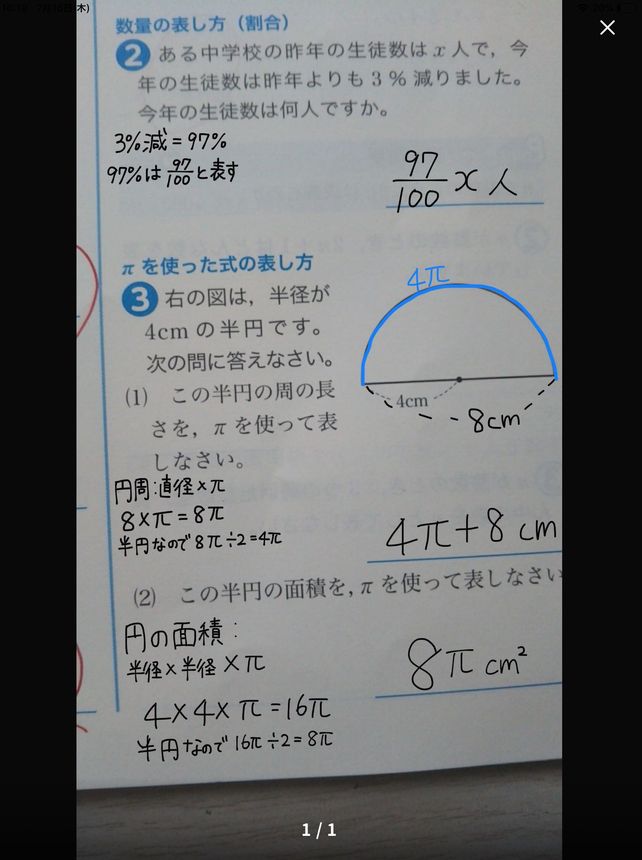 16:18 7月16日(木)
20%
数量の表し方(割合)
2 ある中学校の昨年の生徒数は x 人で，今
年の生徒数は昨年よりも 3 % 減りました。
今年の生徒数は何人ですか。
3%減=97%
97%は 97/100 と表す
97/100 x 人
π を使った式の表し方
3 右の図は，半径が
4cm の半円です。
次の問に答えなさい。
4π
4cm
8cm
(1) この半円の周の長
さを，π を使って表
しなさい。
円周:直径×π
8×π=8π
半円なので 8π÷2=4π
4π+8 cm
(2) この半円の面積を，π を使って表しなさい
円の面積:
半径×半径×π
4×4×π=16π
半円なので 16π÷2=8π
8π cm²
1 / 1